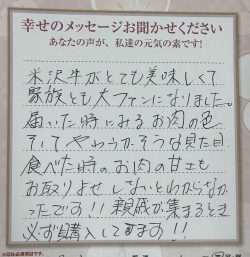 幸せのメッセージお聞かせください
あなたの声が、私達の元気の素です!
米沢牛がとても美味しくて
家族とも大ファンになりました。
届いた時にみるお肉の色
そしてやわらかそうな見た目
食べた時のお肉の甘さも
お取りよせしないとわからなか
ったです!!親戚が集まるとき
必ず購入してます!!
※印は必須項目です。